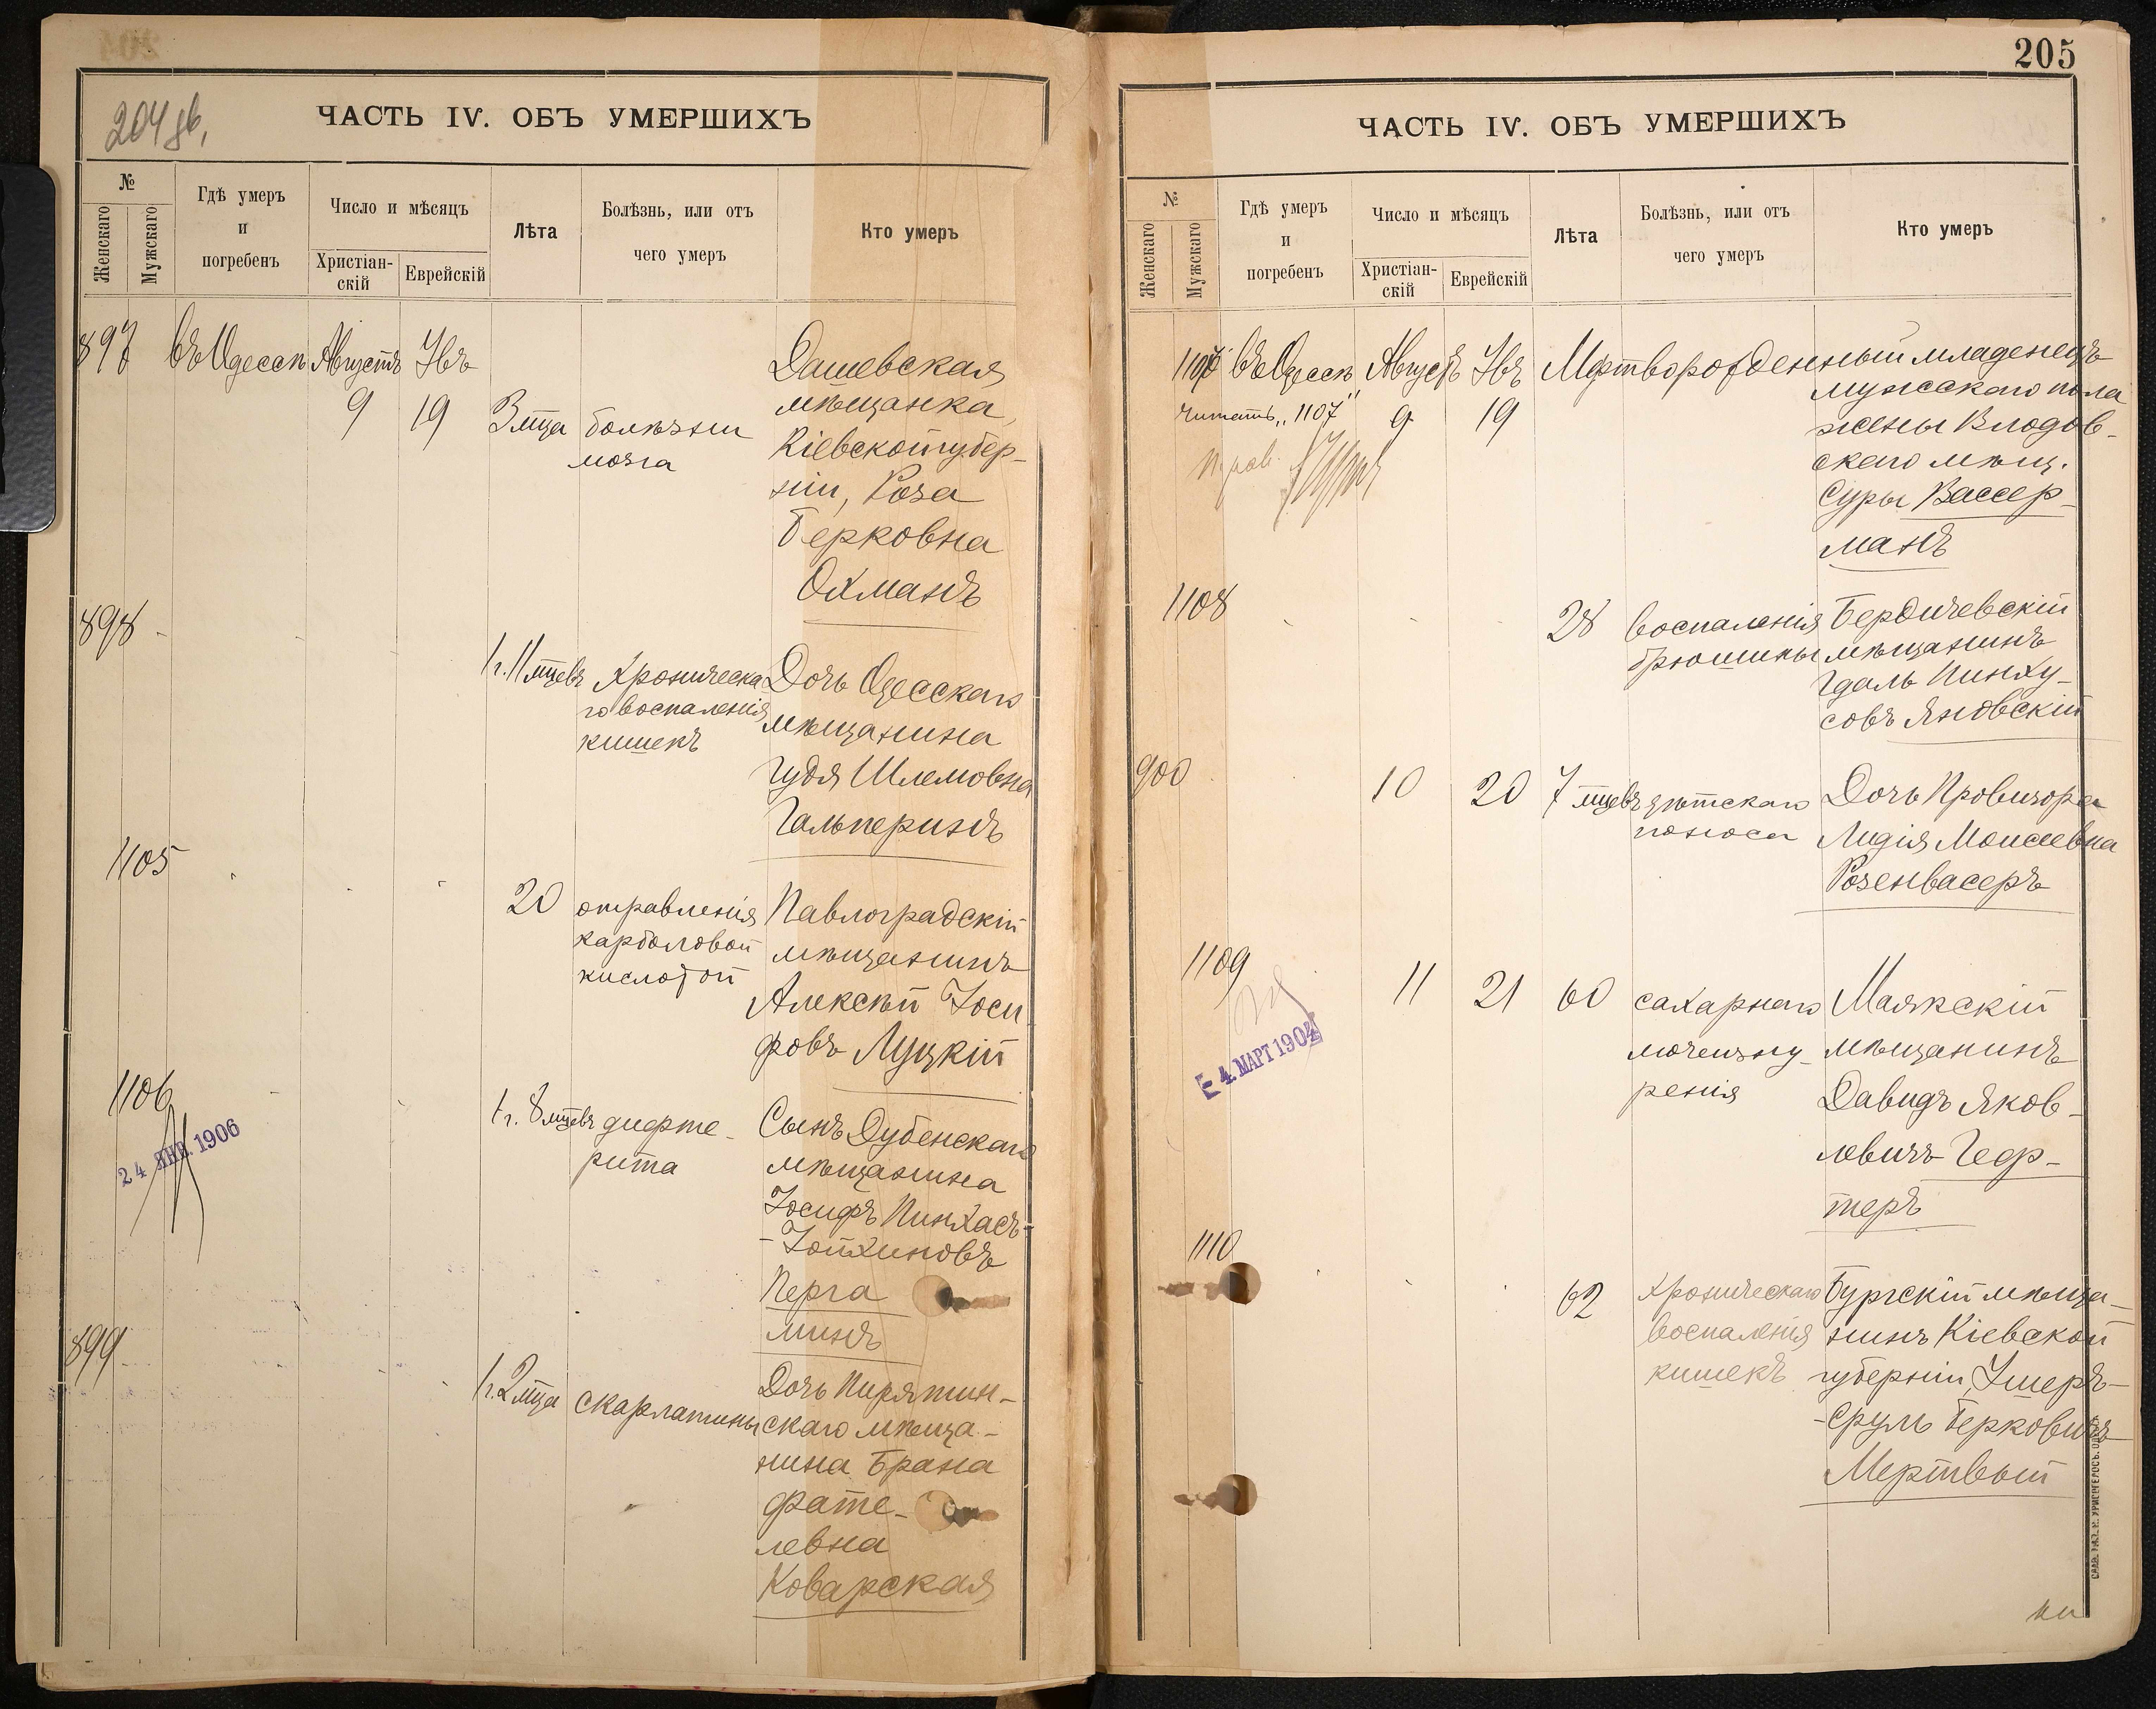 204 об.
ЧАСТЬ IV. ОБЪ УМЕРШИХЪ
№
Женскаго
Мужскаго
Гдѣ умеръ
и
погребенъ
Число и мѣсяцъ
Христіан-
скій
Еврейскій
Лѣта
Болѣзнь, или отъ
чего умеръ
Кто умеръ
897 въ Одессѣ Августъ Увъ
9 19 3 мца
болѣзни
мозга
Дашевская
мѣщанка,
Кіевской губер-
ніи, Роза
Берковна
Охманъ
898
1 г. 11 мцевъ
хроническа
го воспаленія
кишекъ
Дочь Одесскаго
мѣщанина
Гудя Шлемовна
Гальперинъ
1105
20
отравленія
карболовой
кислотой
Павлоградскій
мѣщанинъ
Алексѣй Іоси
фовъ Луцкій
1106
24 ЯНВ. 1906
1 г. 8 мцевъ
дифте-
рита
Сынъ Дубенскаго
мѣщанина
Іосифъ Пинхасъ-
-Іойхиновъ
Перга
минъ
899
1 г. 2 мца
скарлатины
Дочь Пирятин-
скаго мѣща-
нина Брана
Фате-
левна
Коварская
205
ЧАСТЬ IV. ОБЪ УМЕРШИХЪ
№
Женскаго
Мужскаго
Гдѣ умеръ
и
погребенъ
Число и мѣсяцъ
Христіан-
скій
Еврейскій
Лѣта
Болѣзнь, или отъ
чего умеръ
Кто умеръ
въ Одессѣ Августъ Увъ Мертворожденный младенецъ
читать „1107" 9 19
мужскаго пола
жены Влодов-
скаго мѣщ.
Суры Вассер-
манъ
1108
28
воспаленія
брюшины
Бердичевскій
мѣщанинъ
Гдаль Пинху-
совъ Яновскій
900
10 20 7 мцевъ
дѣтскаго
поноса
Дочь Провизора
Лидія Моисеевна
Розенвасеръ
1109
4 МАРТ 1904
11 21 60
сахарнаго
мочеизну-
ренія
Маякскій
мѣщанинъ
Давидъ Яков-
левичъ Геф-
теръ
1110
62
хроническаго
воспаленія
кишекъ
Бургскій мѣща-
нинъ Кіевской
губерніи, Ушеръ-
-Сруль Берковичъ
Мертвый